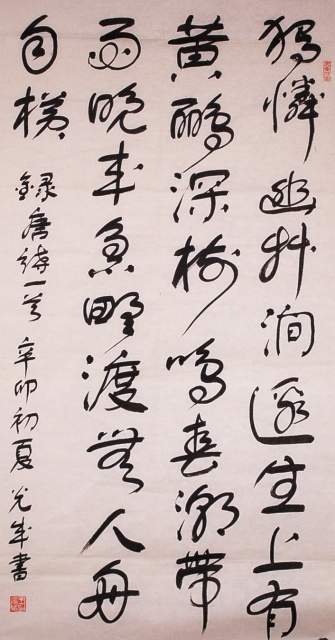 獨憐幽艸澗邊生上有
黃鸝深樹鳴春潮帶
雨晚來急野渡無人舟
自橫
錄唐詩一首 辛卯初夏 光成書